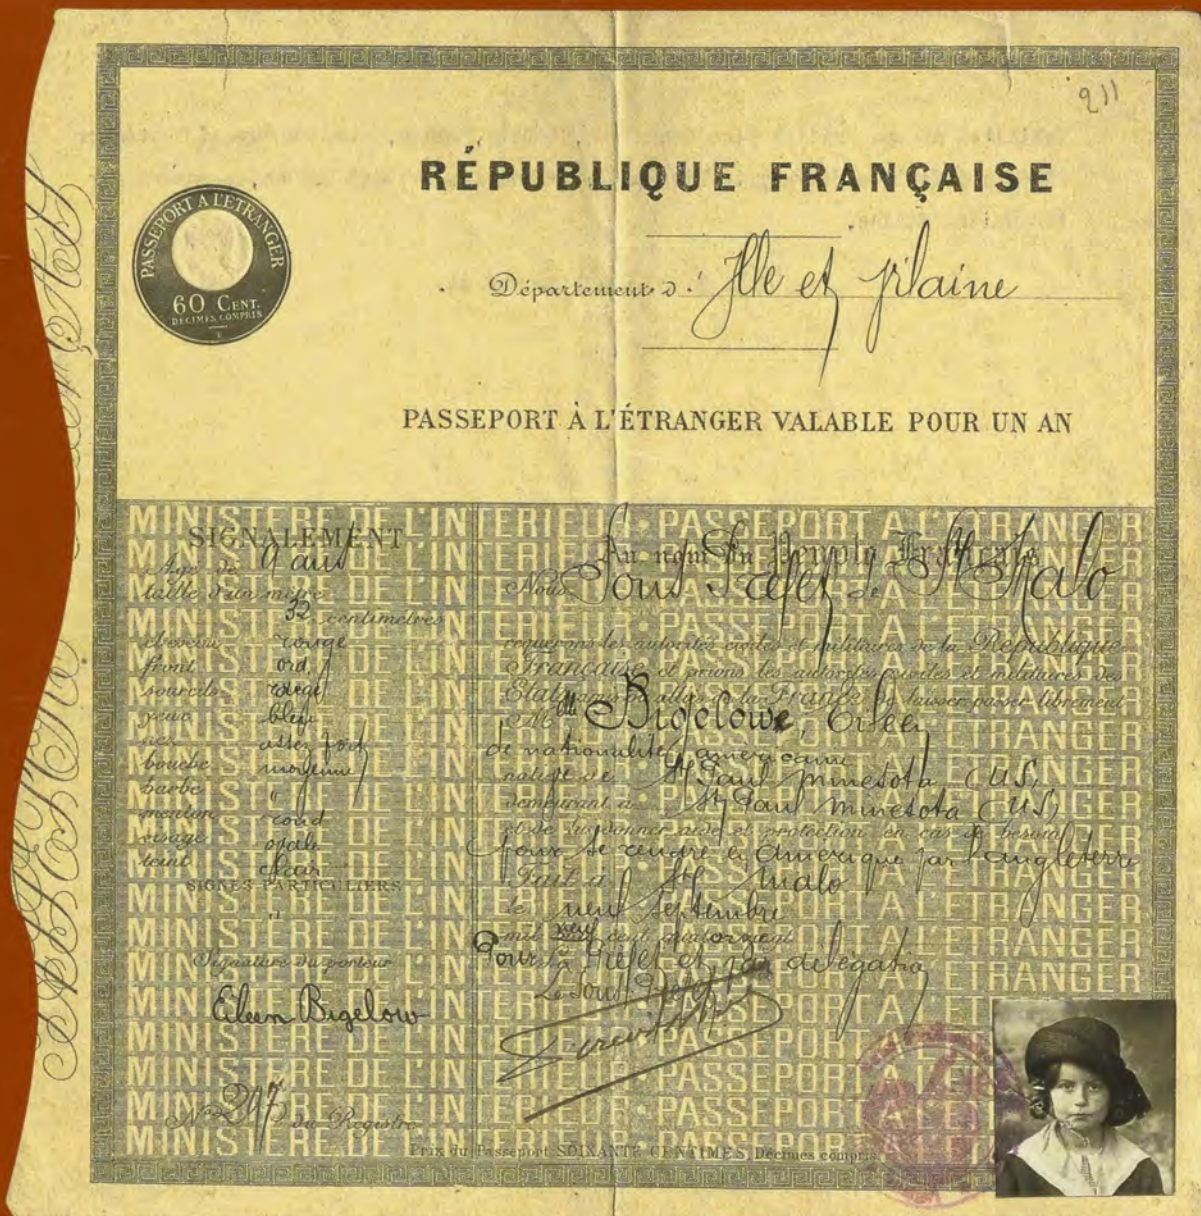 211
RÉPUBLIQUE FRANÇAISE
PASSEPORT A L'ETRANGER
60 CENT.
DECIMES COMPRIS
Département d' Ille et Vilaine
PASSEPORT À L'ÉTRANGER VALABLE POUR UN AN
MINISTERE DE L'INTERIEUR • PASSEPORT A L'ETRANGER
SIGNALEMENT
Age de 9 ans
taille d'un mètre
32 centimètres
cheveux rouge
front ord.
sourcils rouge
yeux bleu
nez assez fort
bouche moyenne
barbe "
menton rond
visage ovale
teint clair
SIGNES PARTICULIERS
"
Signature du porteur
Eileen Bigelow
No 297 du Registre
Au nom du Peuple Français
Nous Sous Préfet de St Malo
requérons les autorités civiles et militaires de la République
Française et prions les autorités civiles et militaires des
Etats amis ou alliés de la France de laisser passer librement
M lle Bigelowe, Eileen
de nationalité américaine
natif de St Paul Minnesota (US)
demeurant à St Paul Minnesota (US)
et de lui donner aide et protection en cas de besoin
pour se rendre en Amérique par l'angleterre
Fait à St Malo
le neuf septembre
mil neuf cent quatorze
Pour le Préfet et par délégation
Le Sous Préfet
Prix du Passeport SOIXANTE CENTIMES, Décimes compris